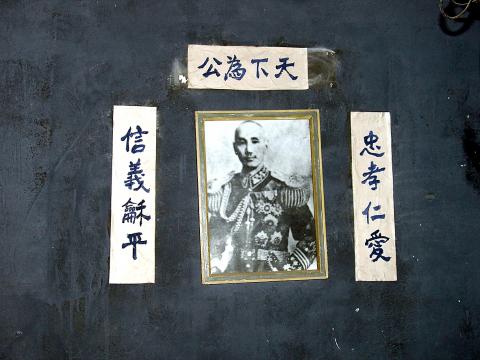 天下為公
忠孝仁愛
信義龢平